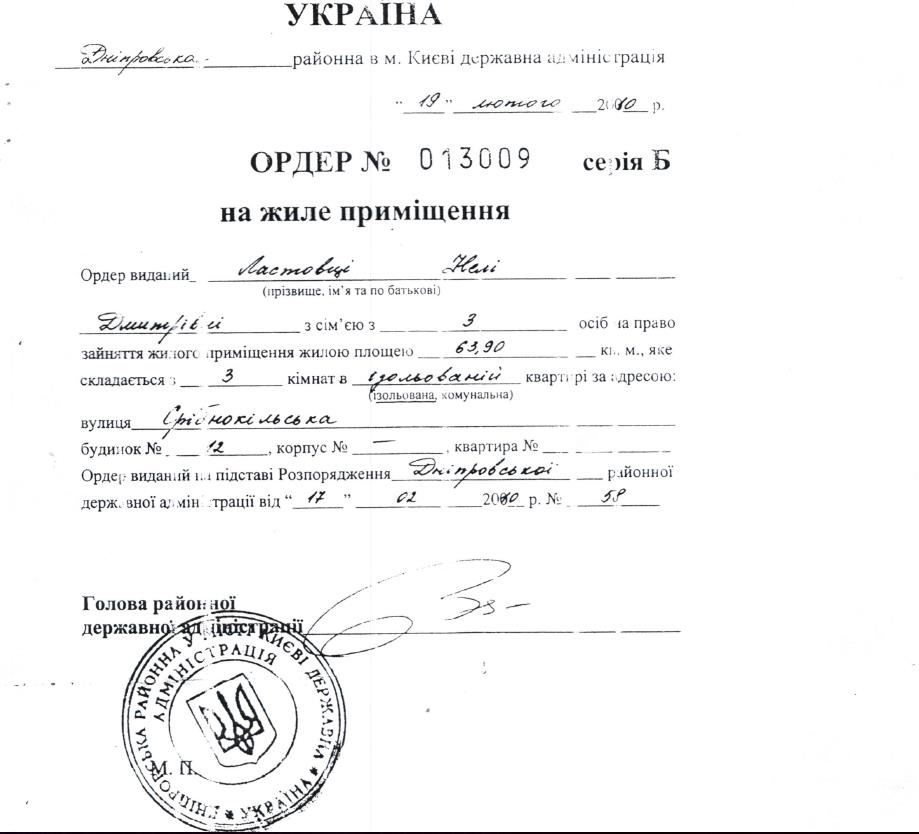 УКРАЇНА
Дніпровська районна в м. Києві державна адміністрація
" 19 " лютого 2010 р.
ОРДЕР № 013009 серія Б
на жиле приміщення
Ордер виданий Ластовці Нелі
(прізвище, ім'я та по батькові)
Дмитрівні з сім'єю з 3 осіб на право
зайняття жилого приміщення жилою площею 63,90 кв. м., яке
складається з 3 кімнат в ізольованій квартирі за адресою:
(ізольована, комунальна)
вулиця Срібнокільська
будинок № 12, корпус № —, квартира №
Ордер виданий на підставі Розпорядження Дніпровської районної
державної адміністрації від " 17 " 02 2010 р. № 58
Голова районної
державної адміністрації
ДНІПРОВСЬКА РАЙОННА У МІСТІ КИЄВІ ДЕРЖАВНА
АДМІНІСТРАЦІЯ
М. П.
* УКРАЇНА *